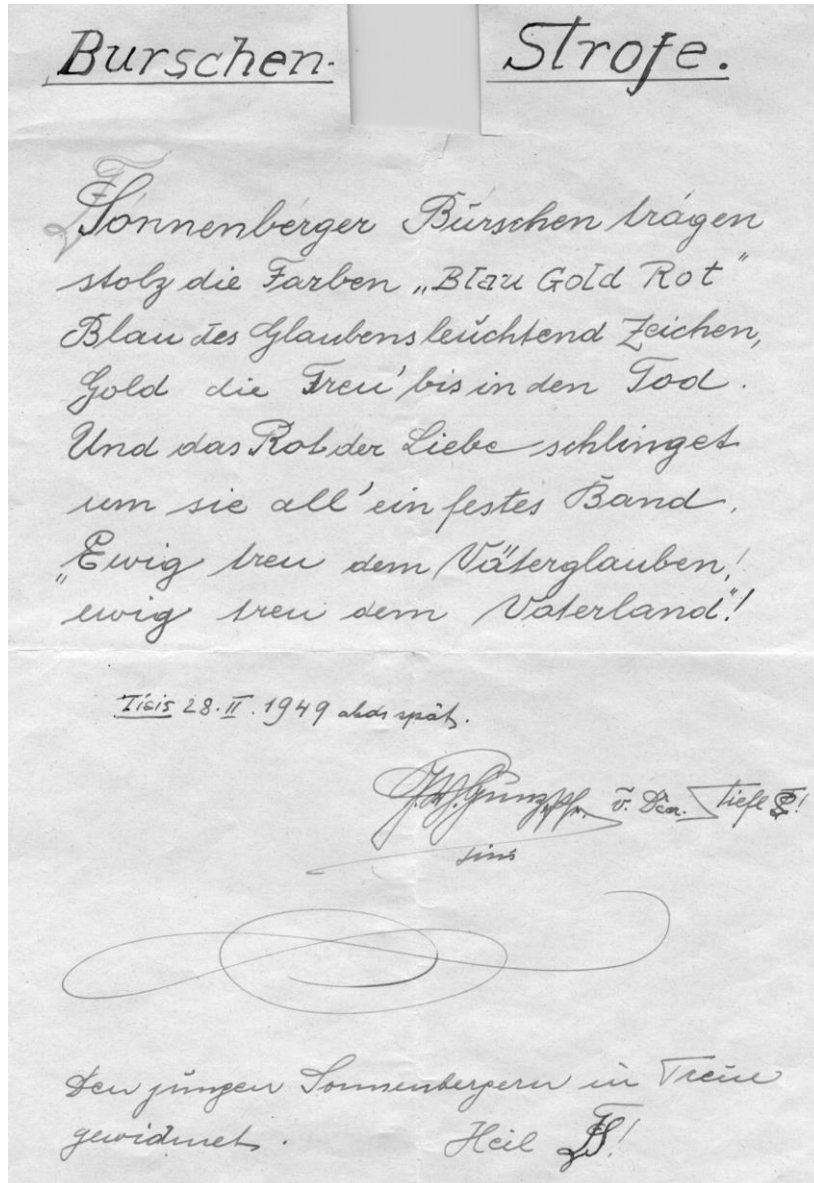 Burschen- Strofe.
Sonnenberger Burschen tragen
stolz die Farben „Blau Gold Rot"
Blau des Glaubens leuchtend Zeichen,
Gold die Treu' bis in den Tod.
Und das Rot der Liebe schlinget
um sie all' ein festes Band,
„Ewig treu dem Väterglauben,!
ewig treu dem Vaterland"!
Tisis 28. II. 1949 abds spät.
v. Tiefl !
Den jungen Sonnenbergern in Treue
gewidmet. Heil !